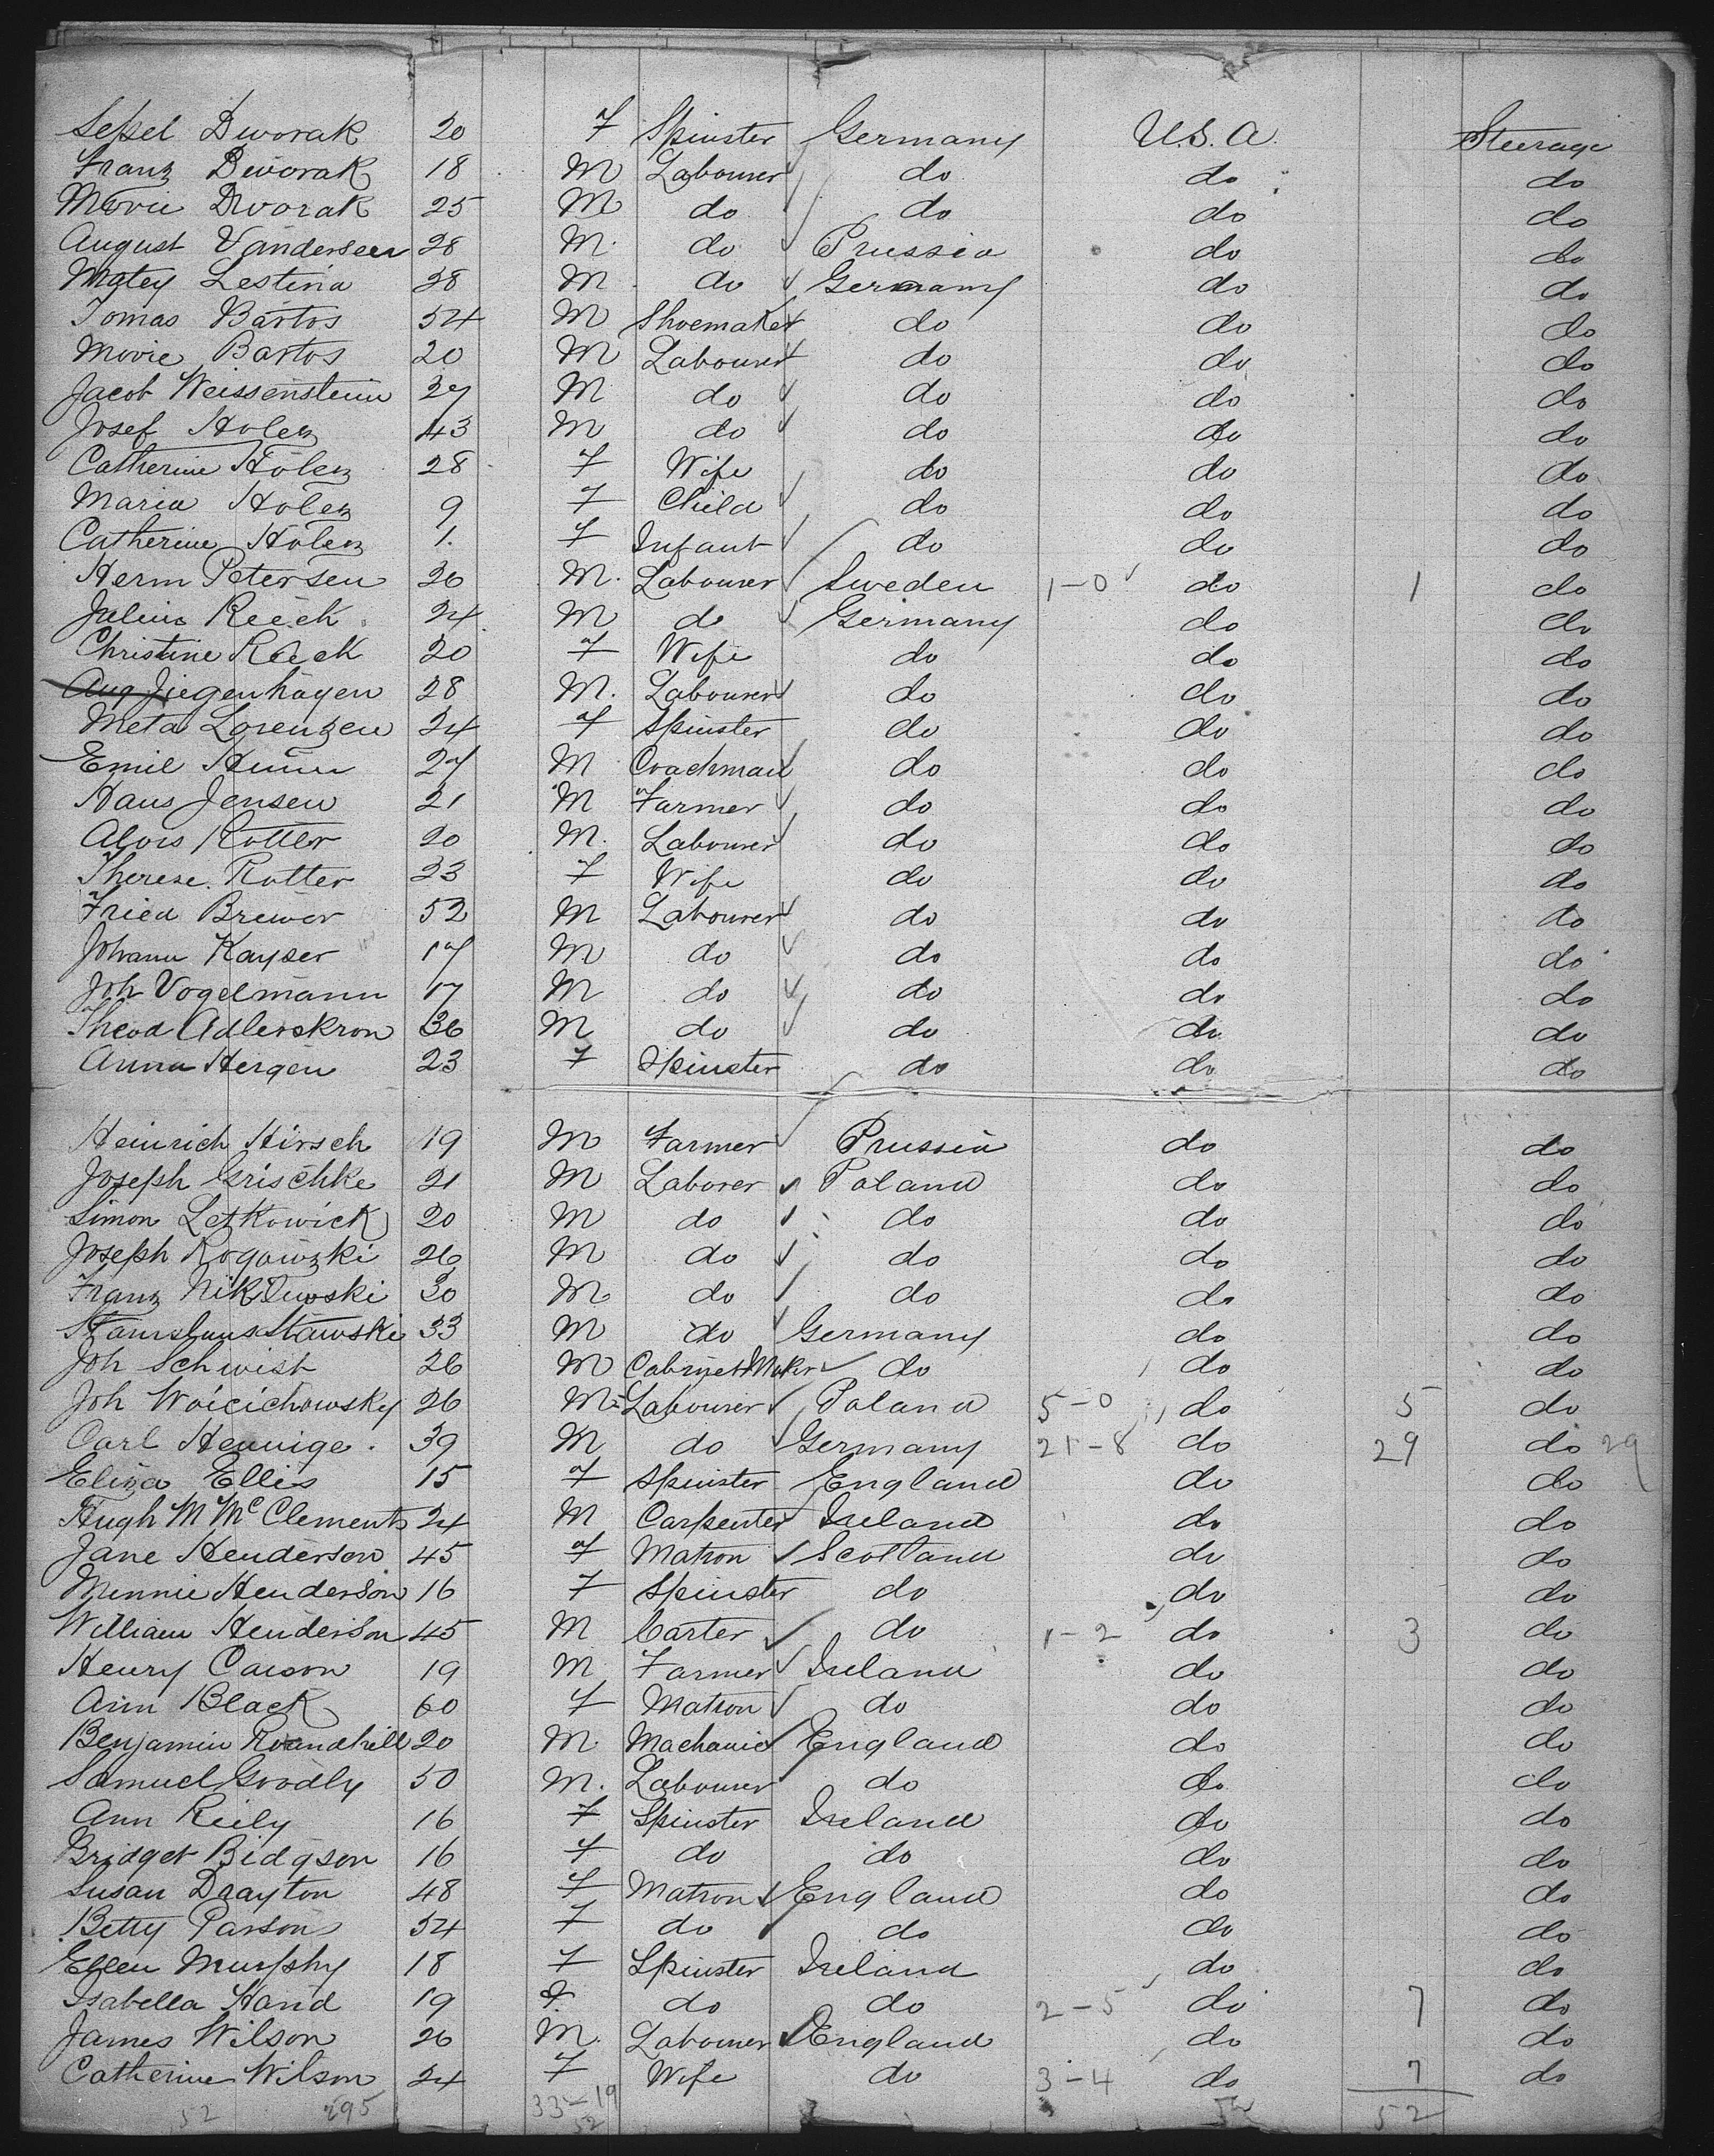 Sepel Dworak 20 F Spinster Germany U.S.A. Steerage
Franz Dworak 18 M Labourer do do do
Movie Dvorak 25 M do do do do
August Vanderseen 28 M do Prussia do do
Matey Lestina 38 M do Germany do do
Tomas Bartos 54 M Shoemaker do do do
Movie Bartos 20 M Labourer do do do
Jacob Weissenstein 27 M do do do do
Josef Holez 43 M do do do do
Catherine Holez 28 F Wife do do do
Maria Holez 9 F Child do do do
Catherine Holez 1. F Infant do do do
Herm Petersen 26 M. Labourer Sweden 1-0 do 1 do
Julius Reeck 24 M do Germany do do
Christine Reeck 20 F Wife do do do
Aug Ziegenhagen 28 M. Labourer do do do
Meta Lorenzen 24 F Spinster do do do
Emil 27 M Coachman do do do
Hans Jensen 21 M Farmer do do do
Alois Rotter 20 M. Labourer do do do
Therese Rotter 23 F Wife do do do
Fried Brewer 52 M Labourer do do do
Johann Kayser 17 M do do do do
Joh Vogelmann 17 M do do do do
Theod Adlerskron 36 M do do do do
Anna Hergen 23 F Spinster do do do
Heinrich Hirsch 19 M Farmer Prussia do do
Joseph Grischke 21 M Laborer Poland do do
Simon Letkowick 20 M do do do do
Joseph Rogowzki 26 M do do do do
Franz Niklowski 30 M do do do do
Stanislaus Stawski 33 M do Germany do do
Joh Schwist 26 M Cabinet Maker do do do
Joh Woicichowsky 26 M. Labourer Poland 5-0 do 5 do
Carl Hennige. 39 M do Germany 21-8 do 29 do 29
Eliza Ellis 15 F Spinster England do do
Hugh M McClements 24 M Carpenter Ireland do do
Jane Henderson 45 F Matron Scotland do do
Minnie Henderson 16 F Spinster do do do
William Henderson 45 M Carter do 1-2 do 3 do
Henry Carson 19 M Farmer Ireland do do
Ann Black 60 F Matron do do do
Benjamin Roundhill 20 M. Machanic England do do
Samuel Goodly 50 M. Labourer do do do
Ann Reily 16 F Spinster Ireland do do
Bridget Bidgson 16 F do do do do
Susan Drayton 48 F Matron England do do
Betty Parsons 54 F do do do do
Ellen Murphy 18 F Spinster Ireland do do
Isabella Hand 19 F. do do 2-5 do 7 do
James Wilson 26 M. Labourer England do do
Catherine Wilson 24 F Wife do 3-4 do 7 do
52 295 33-19 52
52